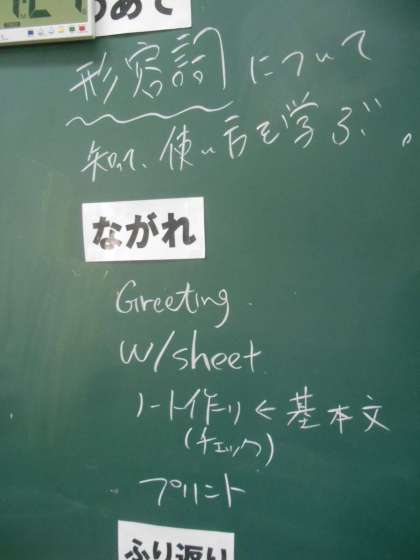 めあて
形容詞について
知って、使い方を学ぶ。
ながれ
Greeting.
W/sheet
ノート作り←基本文
(チェック)
プリント
ふり返り